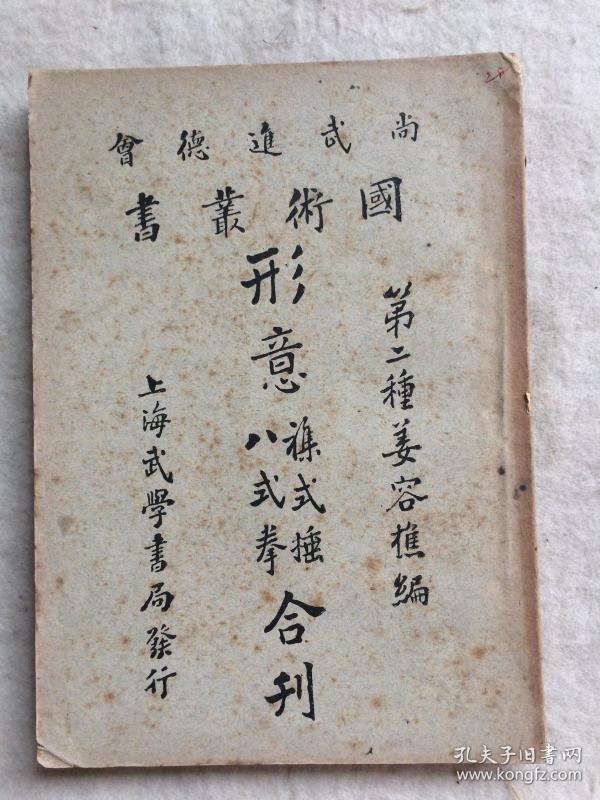 尚武進德會
國術叢書
第二種姜容樵編
形意
襍式捶
八式拳
合刊
上海武學書局發行
孔夫子旧书网
www.kongfz.com